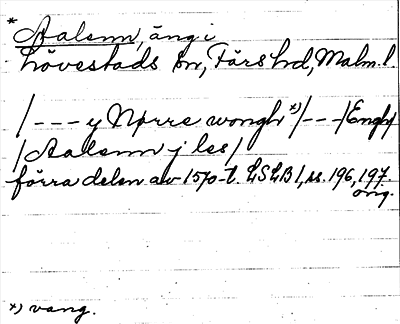 * Aalsnn, äng i
Lövestads sn, Färs hd, Malm.l.
/--- y Nørre wongh *)/---/Engh/
/Aalsnn j les/
förra delen av 1570-t. LSLB 1, ss. 196, 197.
orig.
*) vang.